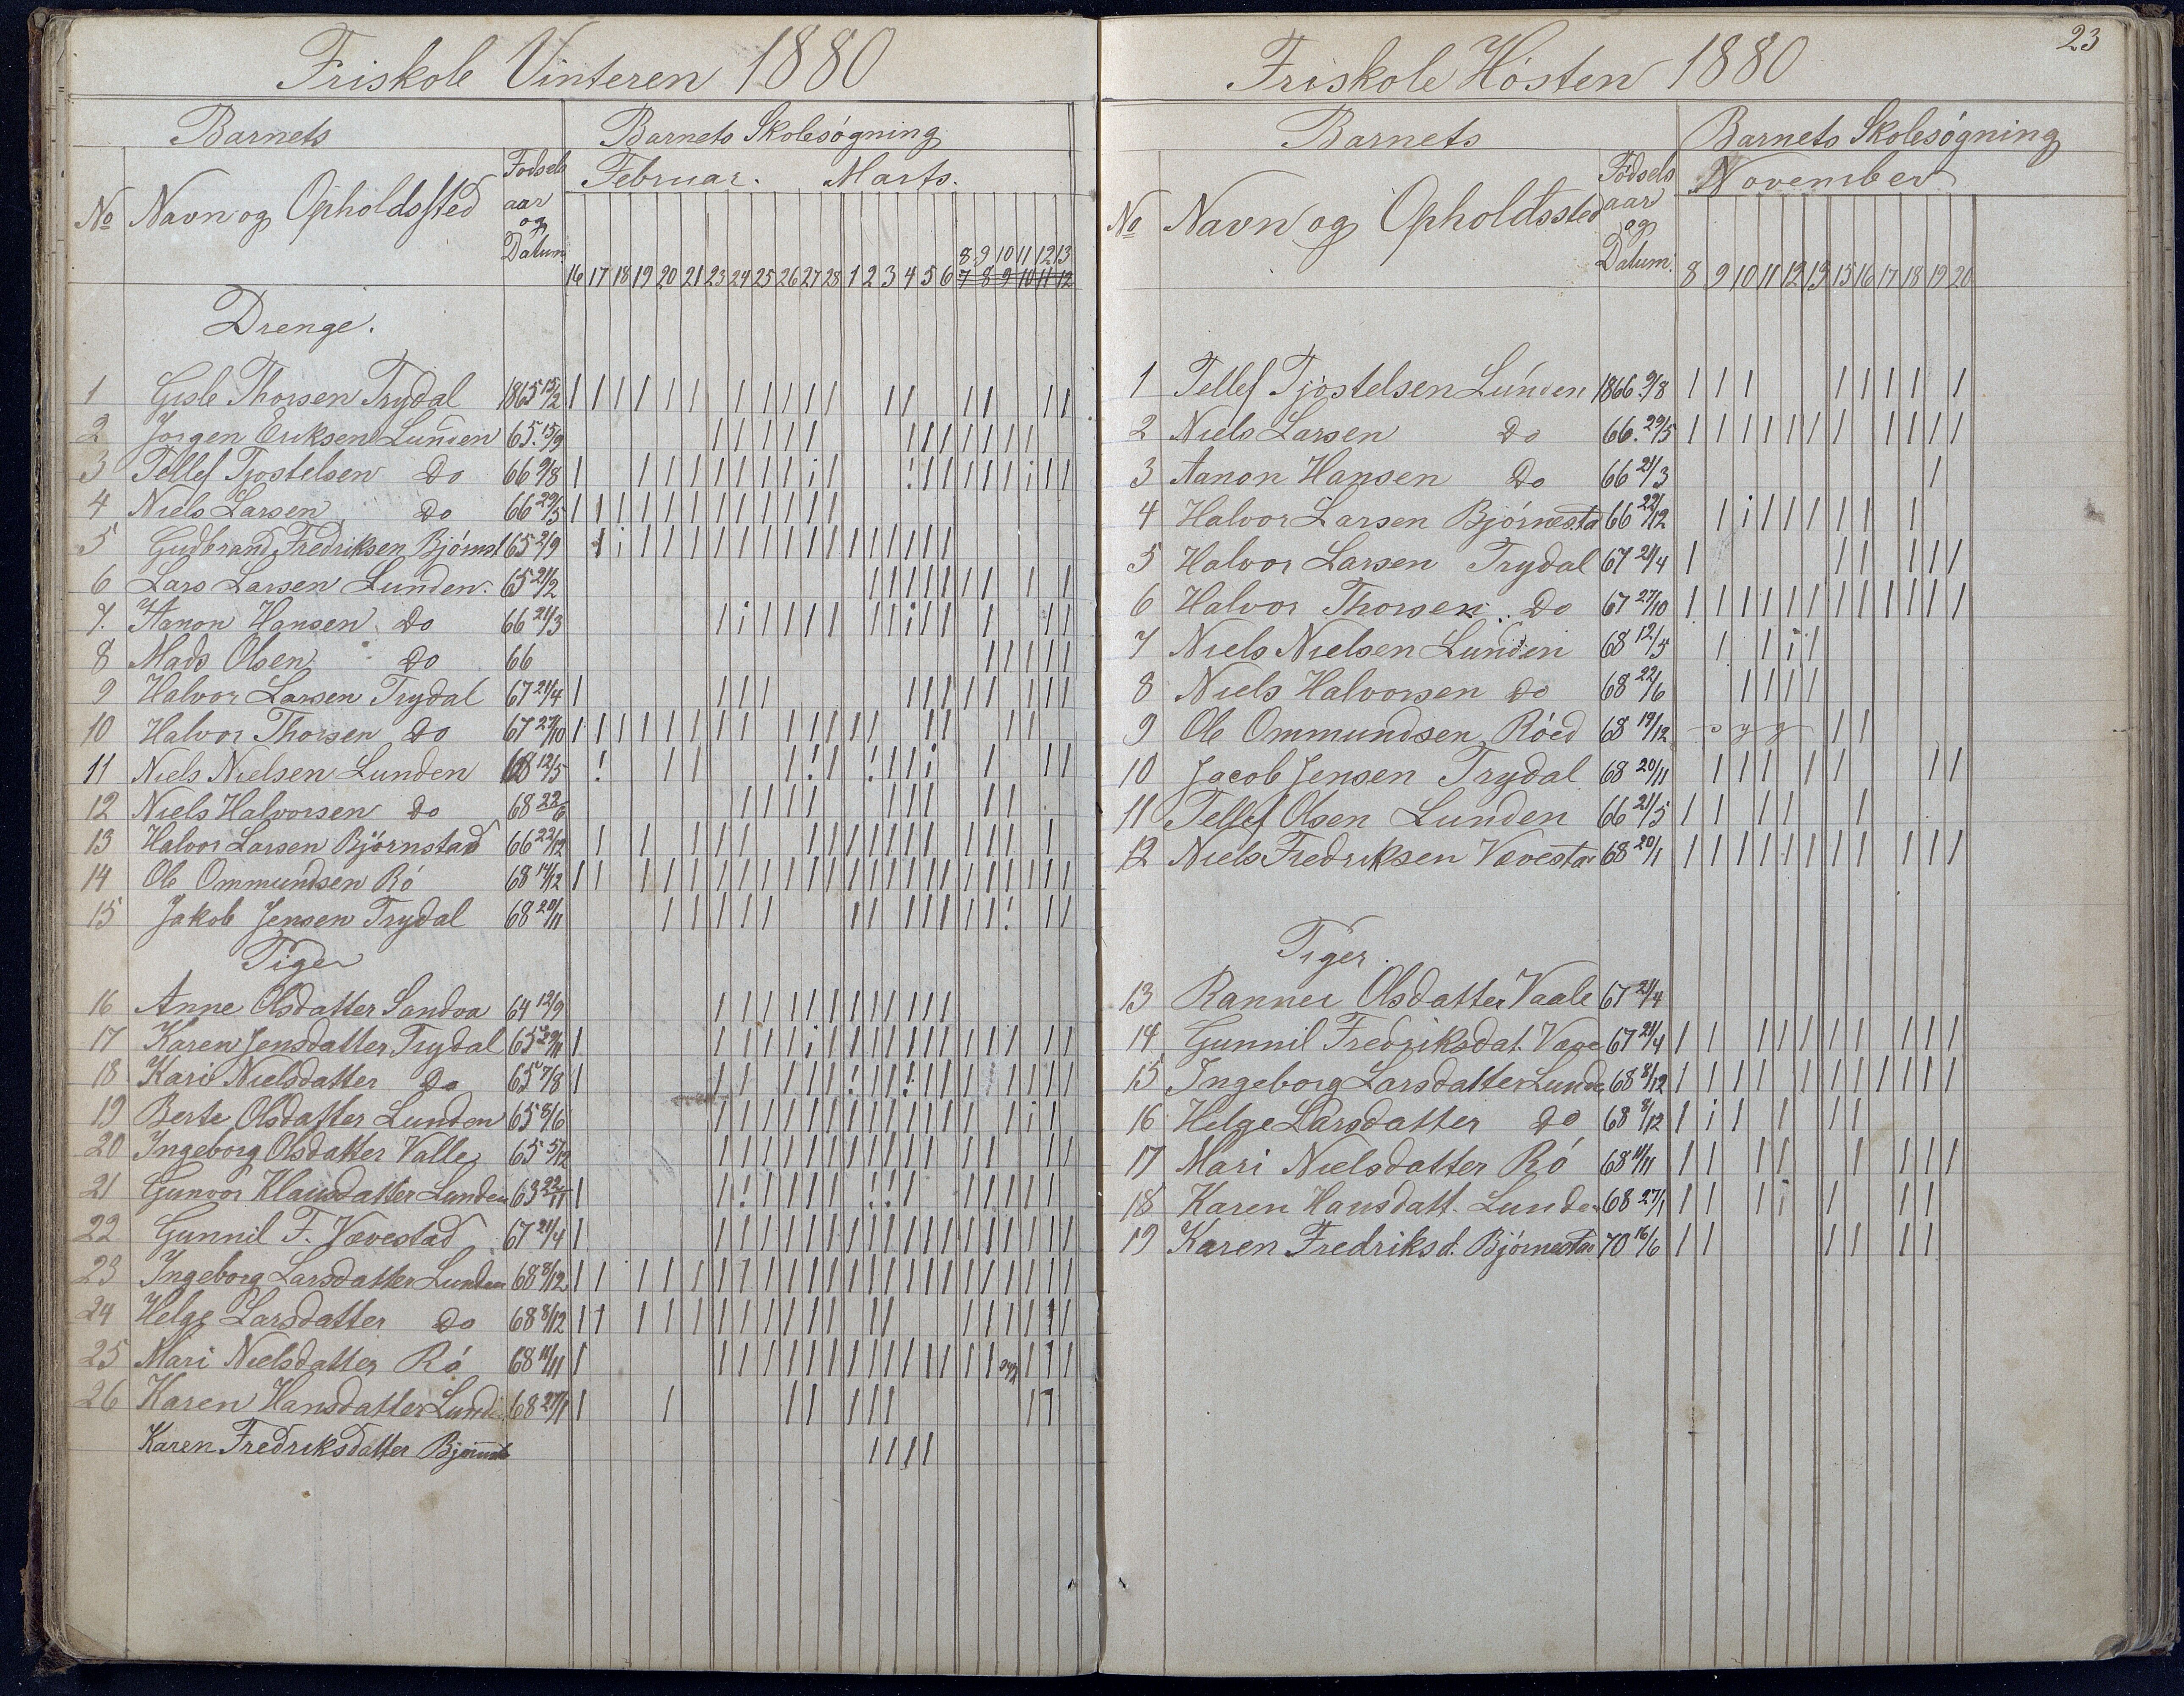 Friskole Vinteren 1880
Barnets
Barnets Skolesøgning
No Navn og Opholdssted
Fødsels aar og Datum
Februar. Marts.
8 9 10 11 12 13
16 17 18 19 20 21 23 24 25 26 27 28 1 2 3 4 5 6 7 8 9 10 11 12
Drenge.
1 Gisle Thorsen Trydal 1865 15/2
2 Jørgen Eriksen Lunden 65. 15/9
3 Tellef Tjostelsen Do 66 9/8
4 Niels Larsen Do 66 29/5
5 Gudbrand Fredriksen Bjørnst 65 2/9
6 Lars Larsen Lunden. 65 21/2
7. Aanon Hansen Do 66 21/3
8 Mads Olsen Do 66
9 Halvor Larsen Trydal 67 21/4
10 Halvor Thorsen Do 67 27/10
11 Niels Nielsen Lunden 68 12/5
12 Niels Halvorsen Do 68 22/6
13 Halvor Larsen Bjørnstad 66 22/12
14 Ole Ommundsen Rø 68 19/12
15 Jakob Jensen Trydal 68 20/11
Piger
16 Anne Olsdatter Sandva 64 12/9
17 Karen Jensdatter Trydal 65 29/11
18 Kari Nielsdatter Do 65 7/8
19 Berte Olsdatter Lunden 65 8/6
20 Ingeborg Olsdatter Valle 65 5/12
21 Gunvor Klausdatter Lunden 63 22/11
22 Gunnil F. Vævestad 67 21/4
23 Ingeborg Larsdatter Lunden 68 8/12
24 Helge Larsdatter Do 68 8/12
25 Mari Nielsdatter Rø 68 11/11 syg
26 Karen Hansdatter Lunde 68 27/1
Karen Fredriksdatter Bjørnst
23
Friskole Høsten 1880
Barnets
Barnets Skolesøgning
No Navn og Opholdssted
Fødsels aar og Datum.
November
8 9 10 11 12 13 15 16 17 18 19 20
1 Tellef Tjøstelsen Lunden 1866. 9/8
2 Niels Larsen Do 66. 29/5
3 Aanon Hansen Do 66 21/3
4 Halvor Larsen Bjørnesta 66 22/12
5 Halvor Larsen Trydal 67 21/4
6 Halvor Thorsen. Do 67 27/10
7 Niels Nielsen Lunden 68 12/5
8 Niels Halvorsen Do 68 22/6
9 Ole Ommundsen Røed 68 19/12 syg
10 Jacob Jensen Trydal 68 20/11
11 Tellef Olsen Lunden 66 21/5
12 Niels Fredriksen Vævestad 68 20/1
Piger.
13 Rannei Olsdatter Vaale 67 21/4
14 Gunnil Fredriksdat. Væve 67 21/4
15 Ingeborg Larsdatter Lunde 68 8/12
16 Helge Larsdatter Do 68 8/12
17 Mari Nielsdatter Rø 68 11/11
18 Karen Hansdatt. Lunde 68 27/1
19 Karen Fredriksd. Bjørnestad 70 16/6